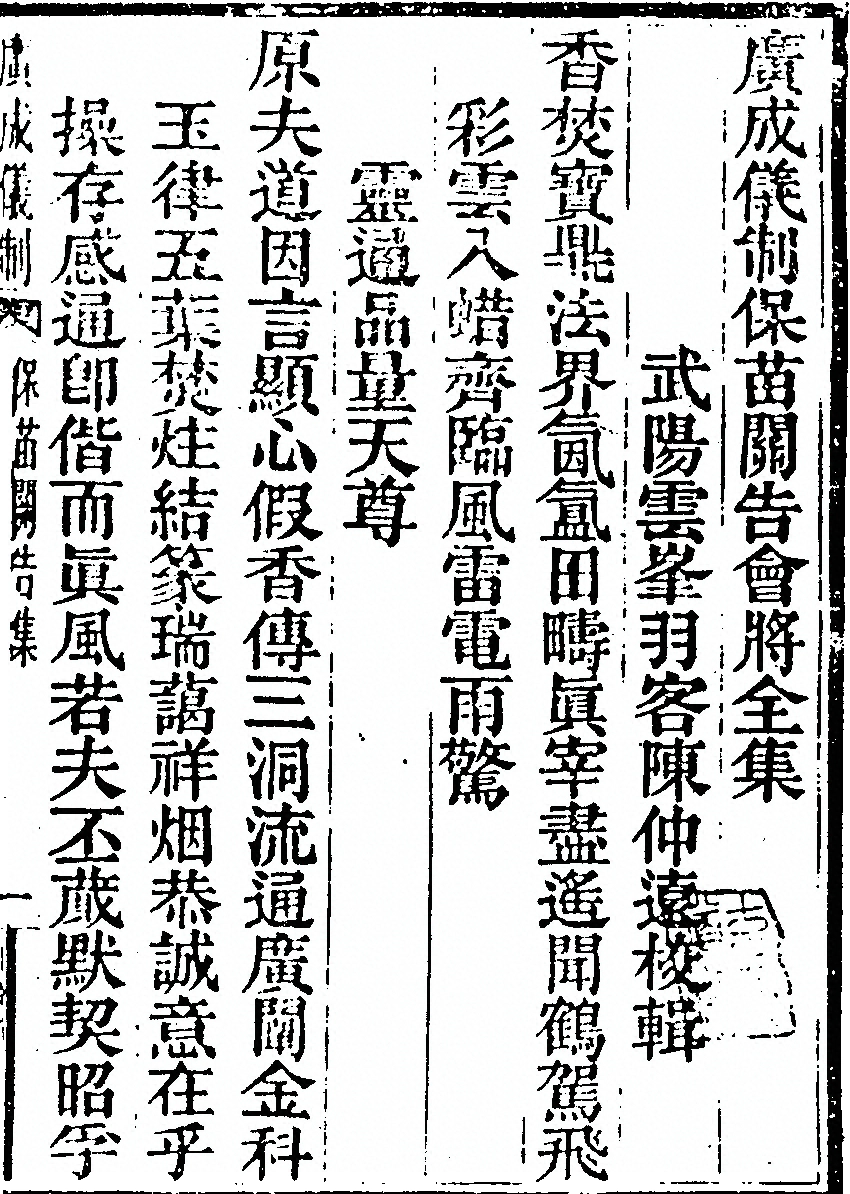 廣成儀制保苗關告會將全集
武陽雲峯羽客陳仲遠校輯
香焚寶鼎法界氤氲田疇眞宰盡遙聞鶴駕飛
彩雲入蜡齊臨風雷電雨驚
靈通品量天尊
原夫道因言顯心假香傳三洞流通廣闡金科
玉律五葉焚炷結篆瑞藹祥烟恭誠意在乎
操存感通卽偕而眞風若夫丕蕆默契昭孚
廣成儀制 保苗關告集 一